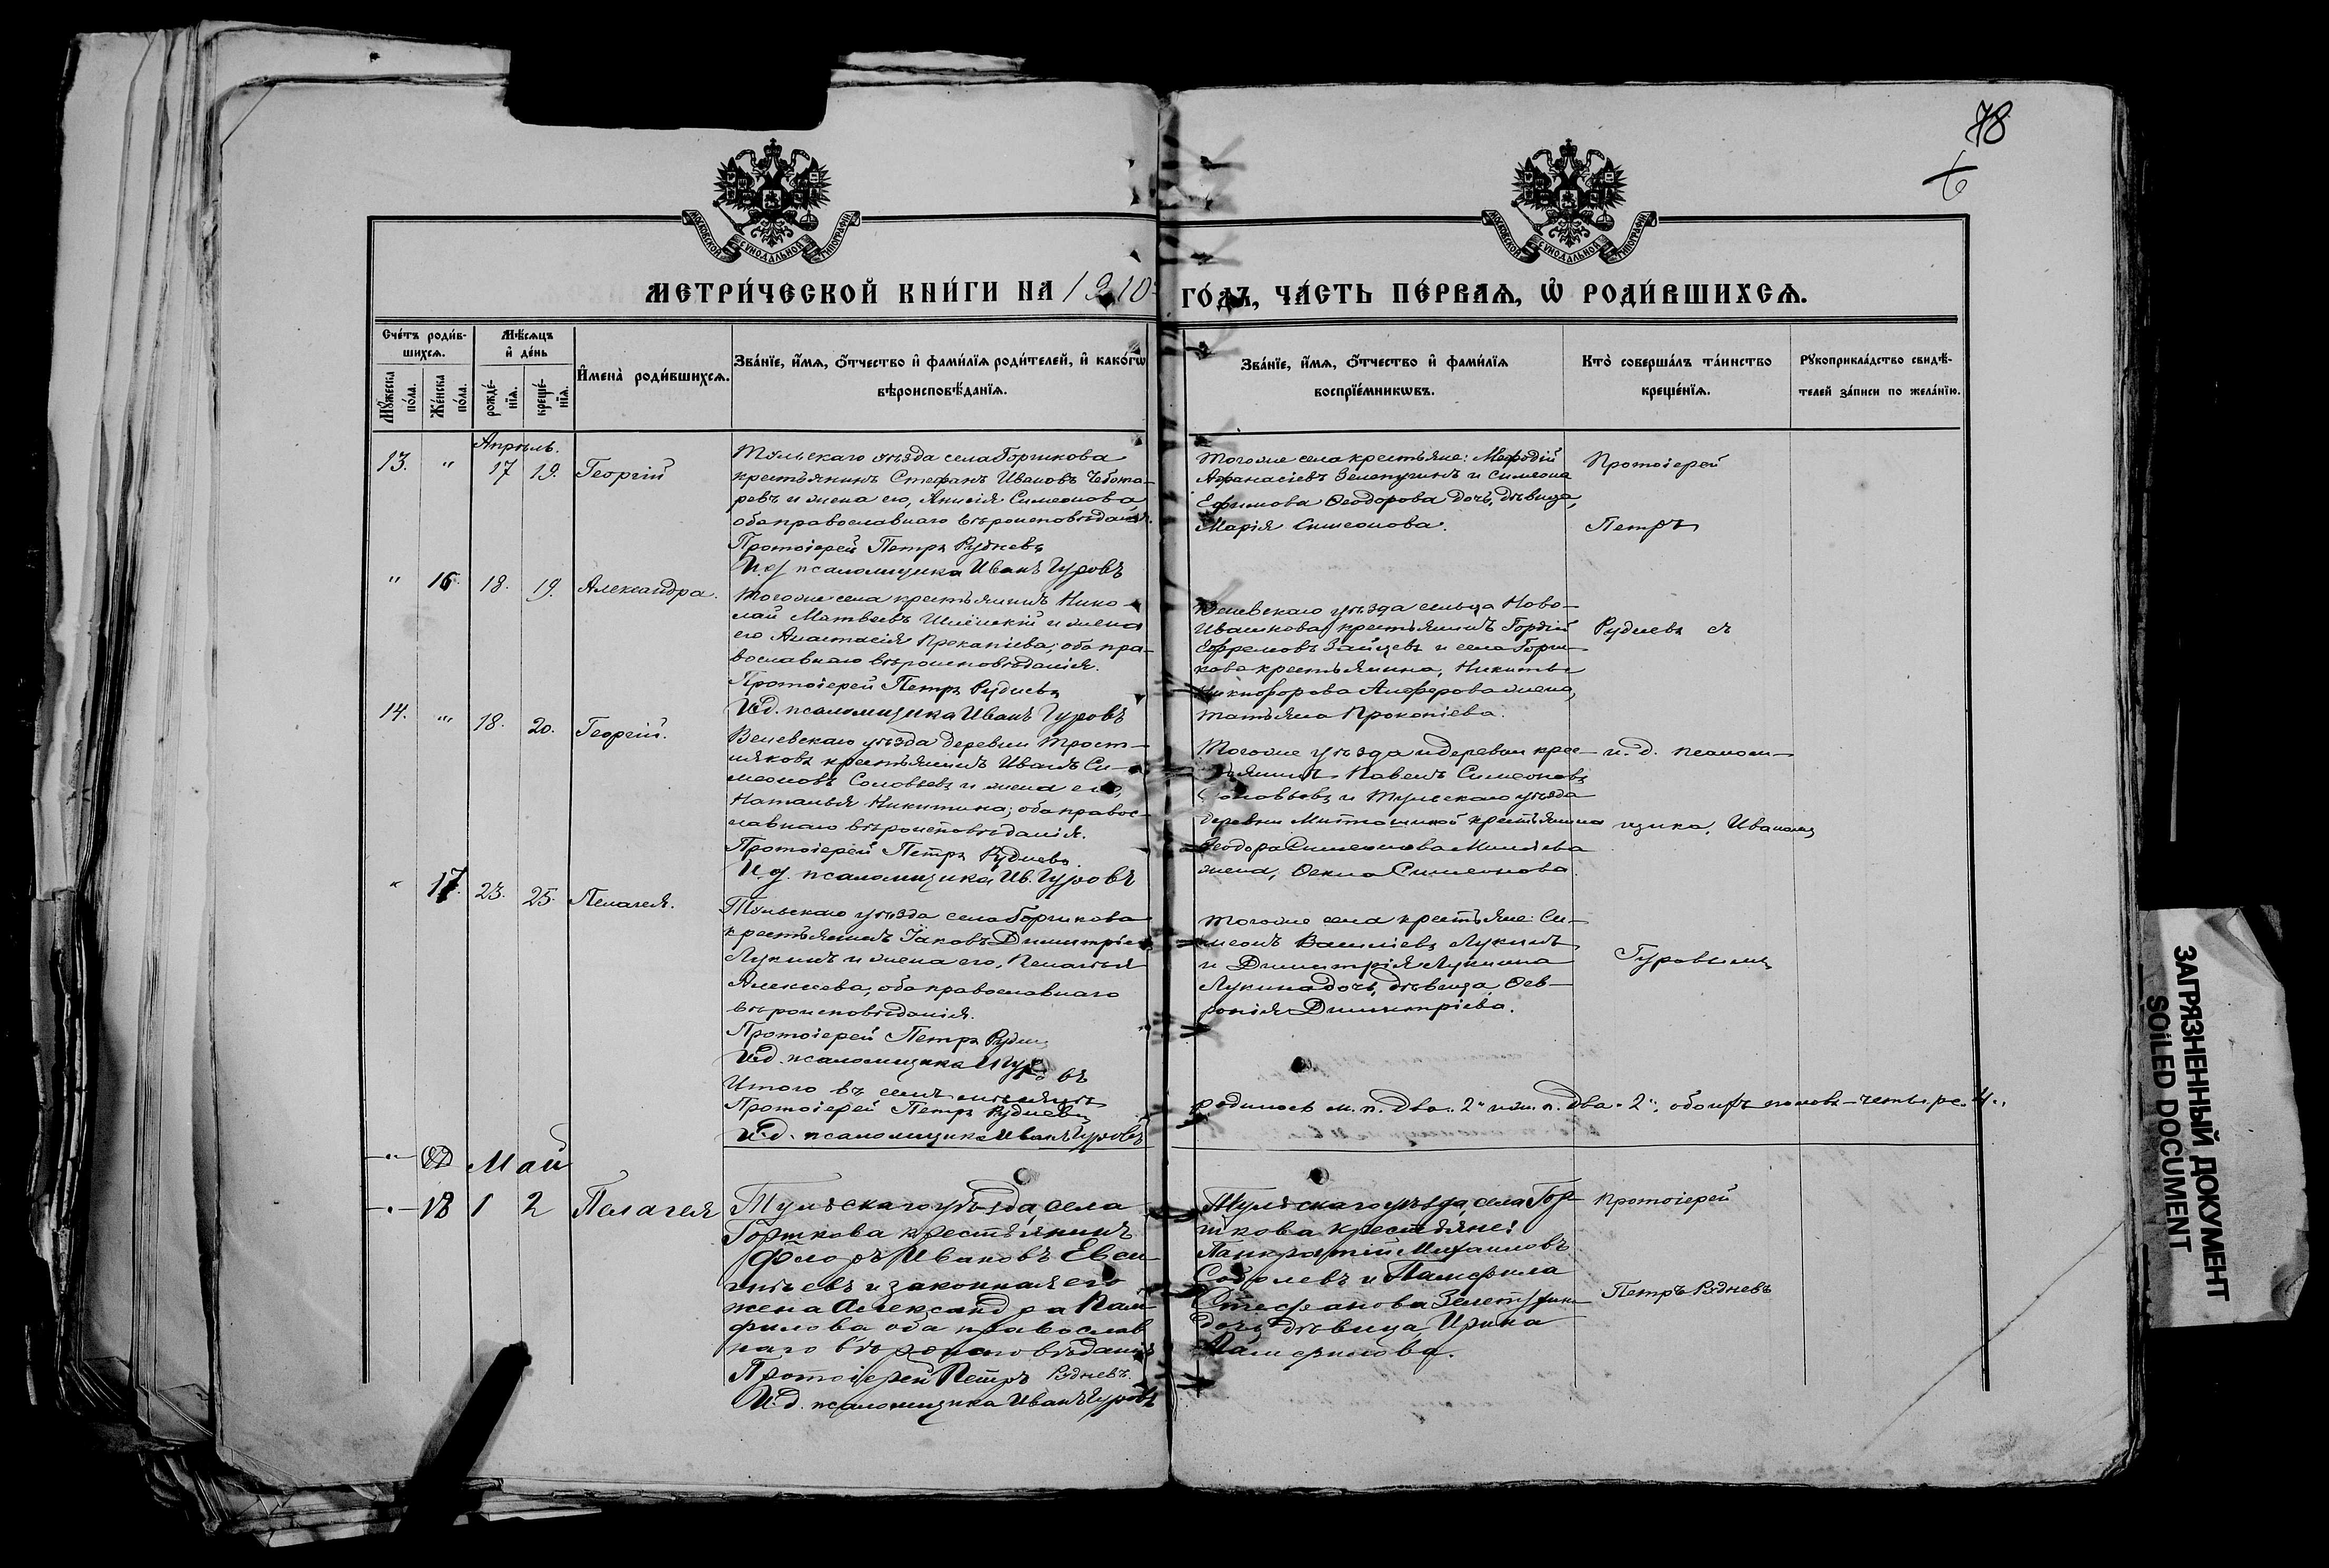 78
6
МОСКОВСКОЙ СѴНОДАЛЬНОЙ ТИПОГРАФІИ
МОСКОВСКОЙ СѴНОДАЛЬНОЙ ТИПОГРАФІИ
МЕТРИ́ЧЕСКОЙ КНИ́ГИ НА 1910
ГО́ДЪ, ЧА́СТЬ ПЕ́РВАѦ, Ѽ РОДИ́ВШИХСѦ.
Сче́тъ роди́в-
шихсѧ.
Мѣ́сѧцъ
и҆ де́нь
Мꙋ́жеска
по́ла.
Же́нска
по́ла.
рожде́-
нїѧ.
креще́-
нїѧ.
И҆мена̀ роди́вшихсѧ.
Зва́нїе, и҆́мѧ, ѻ҆́тчество и҆ фами́лїѧ роди́телей, и҆ како́гѡ
вѣроисповѣ́данїѧ.
Зва́нїе, и҆́мѧ, ѻ҆́тчество и҆ фами́лїѧ
воспрїе́мникѡвъ.
Кто̀ соверша́лъ та́инство
креще́нїѧ.
Рꙋкоприкла́дство свидѣ́-
телей за́писи по жела́нїю.
Апрѣль.
13. " 17 19. Георгій
Тульскаго уѣзда села Горшкова
крестьянинъ Стефанъ Ивановъ Чебота-
ревъ и жена его, Анисія Симеонова,
оба православнаго вѣроисповѣданія.
Протоіерей Петръ Рудневъ
И.д. псаломщика Иванъ Гуровъ
Тогоже села крестьяне: Мефодій
Афанасіевъ Зелепугинъ и Симеона
Ефимова Ѳеодорова дочь, дѣвица,
Марія Симеонова.
Протоіерей
Петръ
" 16. 18. 19. Александра.
Тогоже села крестьянинъ Нико-
лай Матвеевъ и жена
его Анастасія Прокопіева; оба пра-
вославнаго вѣроисповѣданія.
Протоіерей Петръ Рудневъ
И.д. псаломщика Иванъ Гуровъ
Веневскаго уѣзда сельца Ново-
Ивашкова крестьянинъ Гордій
Ефремовъ Зайцевъ и села Горш-
кова крестьянина, Никиты
Никифорова Алферова жена,
Татьяна Прокопіева.
Рудневъ съ
14. " 18. 20. Георгій.
Веневскаго уѣзда деревни Трост-
никовъ крестьянинъ Иванъ Си-
меоновъ Соловьевъ и жена его,
Наталья Никитина; оба правос-
лавнаго вѣроисповѣданія.
Протоіерей Петръ Рудневъ.
И.д. псаломщика Ив. Гуровъ
Тогоже уѣзда и деревни крес-
тьянинъ Павелъ Симеоновъ
Соловьевъ и Тульскаго уѣзда
деревни крестьянина
Ѳеодора Симеонова
жена, Ѳекла Симеонова.
и. д. псалом-
щика, Иваномъ
" 17. 23. 25. Пелагея.
Тульскаго уѣзда села Горшкова
крестьянинъ Іаковъ Димитріевъ
Лукинъ и жена его, Пелагея
Алексеева, оба православнаго
вѣроисповѣданія.
Протоіерей Петръ Рудневъ
И.д. псаломщика И Гуровъ
Тогоже села крестьяне: Си-
меонъ Василіевъ Лукинъ
и Димитрія Лукина
Лукина дочь, дѣвица, Ѳев-
ронія Димитріева.
Гуровымъ
Итого въ семъ мѣсяцѣ
родилось м. п. два "2" и ж. п. два "2", обоихъ половъ – четыре "4".
Протоіерей Петръ Рудневъ
И.д. псаломщика Иванъ Гуровъ
Май
" 18 1 2 Пелагея
Тульскаго уѣзда, села
Горшкова крестьянинъ
Флоръ Ивановъ Евсиг-
нѣевъ и законная его
жена Александра Пам-
филова оба православ
наго вѣроисповѣданія
Протоіерей Петръ Рудневъ.
И.д. псаломщика Иванъ Гуровъ
Тульскаго уѣзда, села Гор-
шкова крестьяне:
Панкратій Михаиловъ
Соболевъ и Памфила
Стефанова
дочь дѣвица Ирина
Памфилова.
Протоіерей
Петръ Рудневъ
ЗАГРЯЗНЕННЫЙ ДОКУМЕНТ
SOiLED DOCUMENT